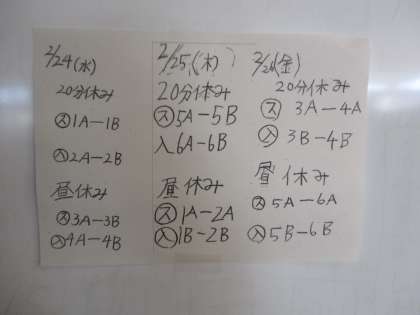 2/24(水)
20分休み
ス1A-1B
入2A-2B
昼休み
ス3A-3B
入4A-4B
2/25(木)
20分休み
ス5A-5B
入6A-6B
昼休み
ス1A-2A
入1B-2B
2/26(金)
20分休み
ス3A-4A
入3B-4B
昼休み
ス5A-6A
入5B-6B